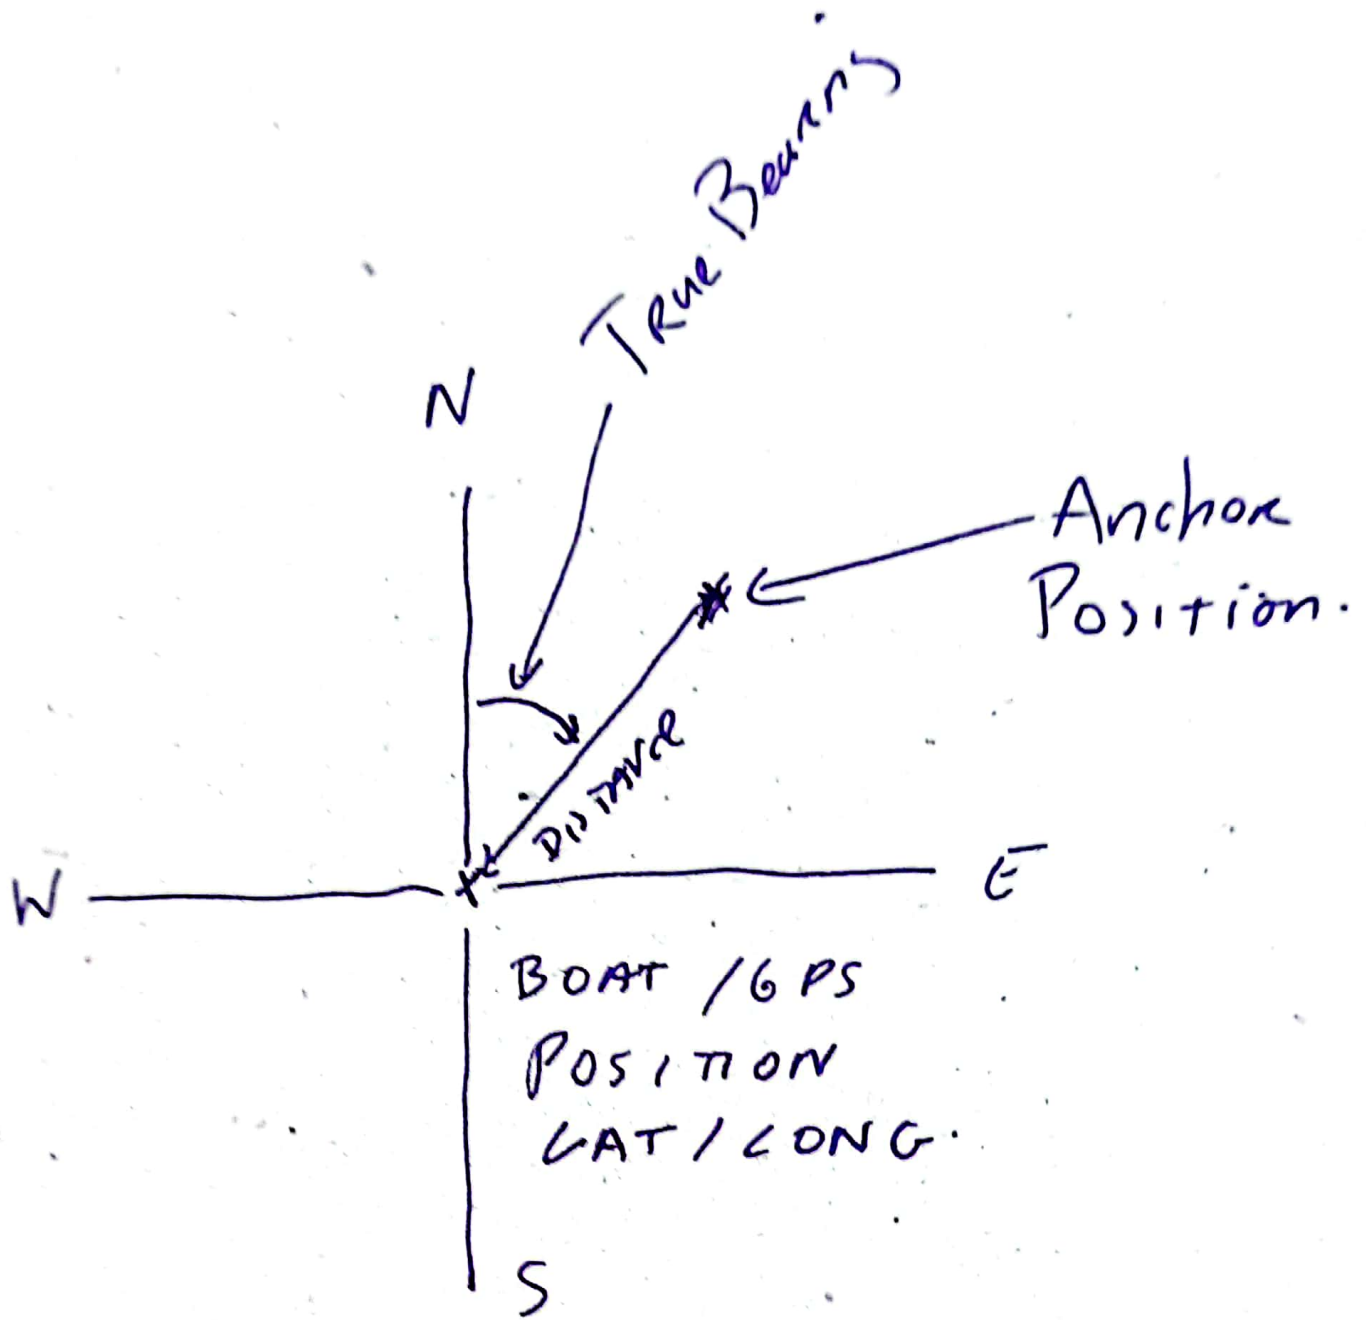 True Bearing
N
Anchor
Position.
DISTANCE
W
E
BOAT / GPS
POSITION
LAT / LONG.
S